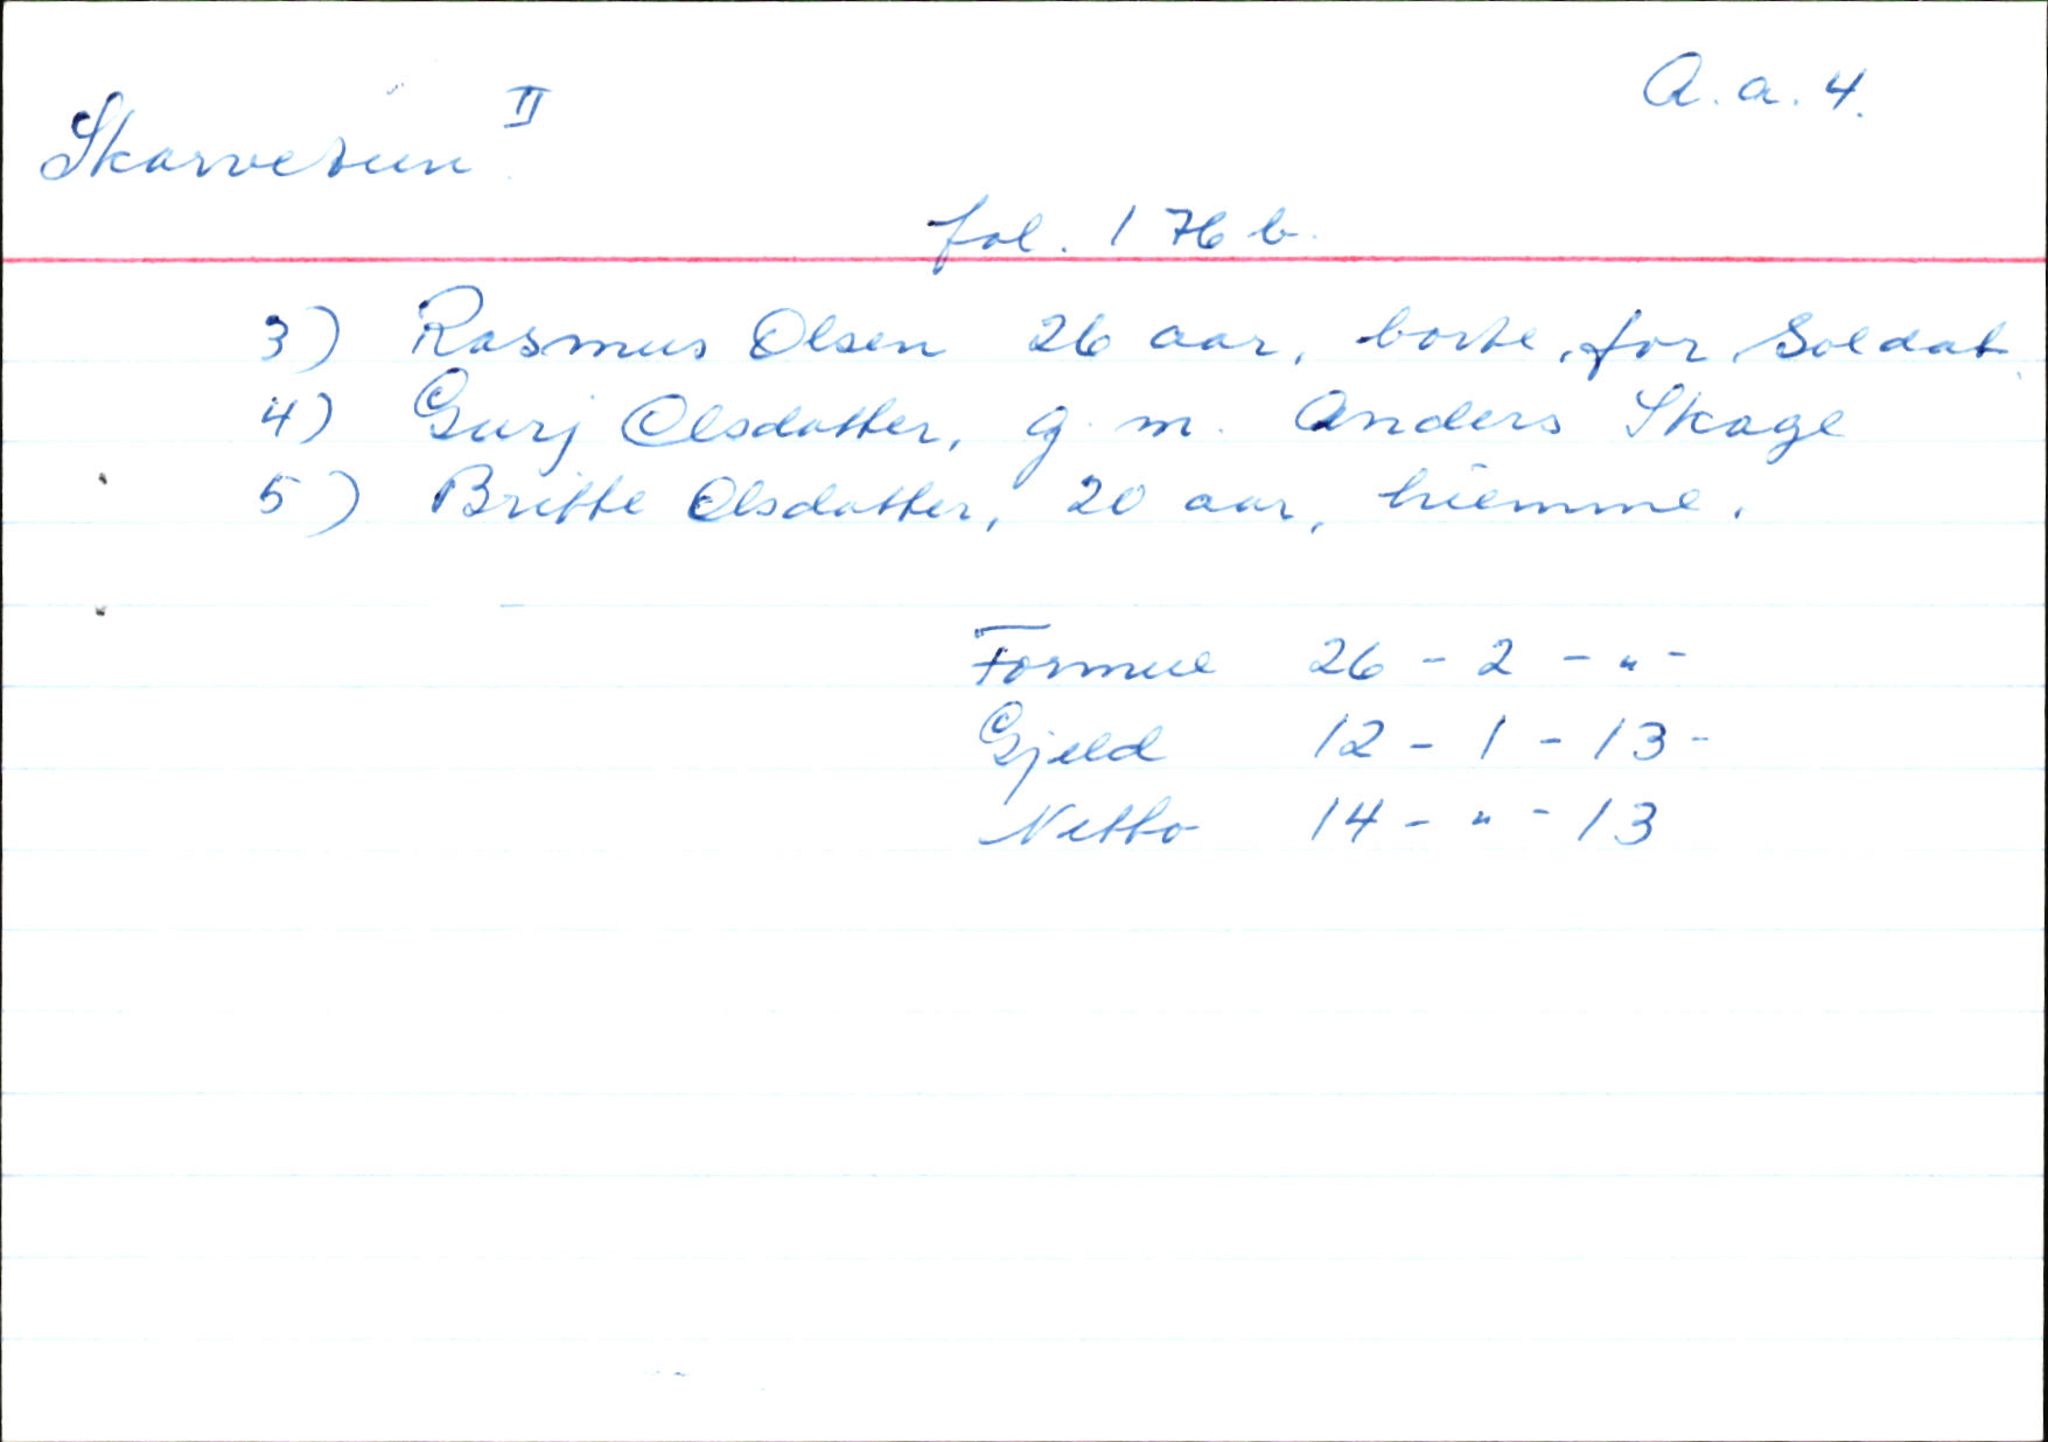 A. a. 4.
Skarvetun II
fol. 176 b.
3) Rasmus Olsen 26 aar, borte, for Soldat
4) Gurj Olsdatter, g. m. Anders Skage
5) Britte Olsdatter, 20 aar, hiemme.
Formue 26 - 2 - " -
Gjeld 12 - 1 - 13 -
Netto 14 - " - 13